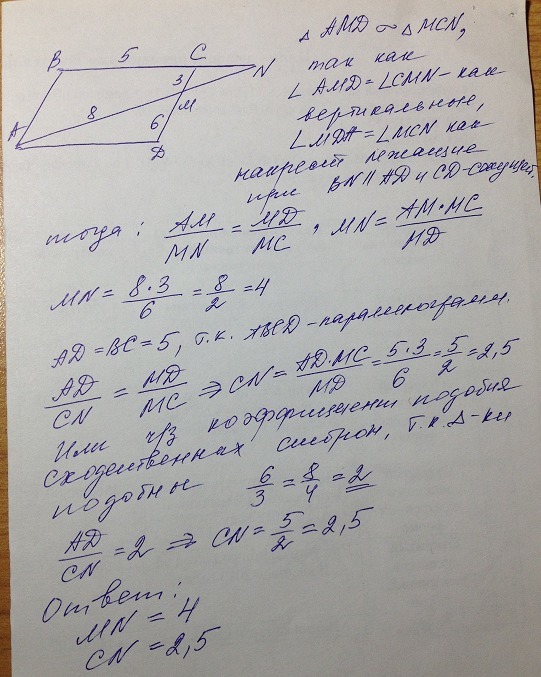 B 5 C N
3
M
8
6
A D
△ AMD ~ △ MCN,
так как
∠ AMD = ∠CMN - как
вертикальные,
∠MDA = ∠MCN как
накрест лежащие
при BN ∥ AD и CD - секущей.
тогда: AM/MN = MD/MC, MN = AM·MC/MD
MN = 8·3/6 = 8/2 = 4
AD = BC = 5, т.к. ABCD - параллелограмм.
AD/CN = MD/MC ⇒ CN = AD·MC/MD = 5·3/6 = 5/2 = 2,5
Или ч/з коэффициент подобия
сходственных сторон, т.к. △-ки
подобны 6/3 = 8/4 = 2
AD/CN = 2 ⇒ CN = 5/2 = 2,5
Ответ:
MN = 4
CN = 2,5